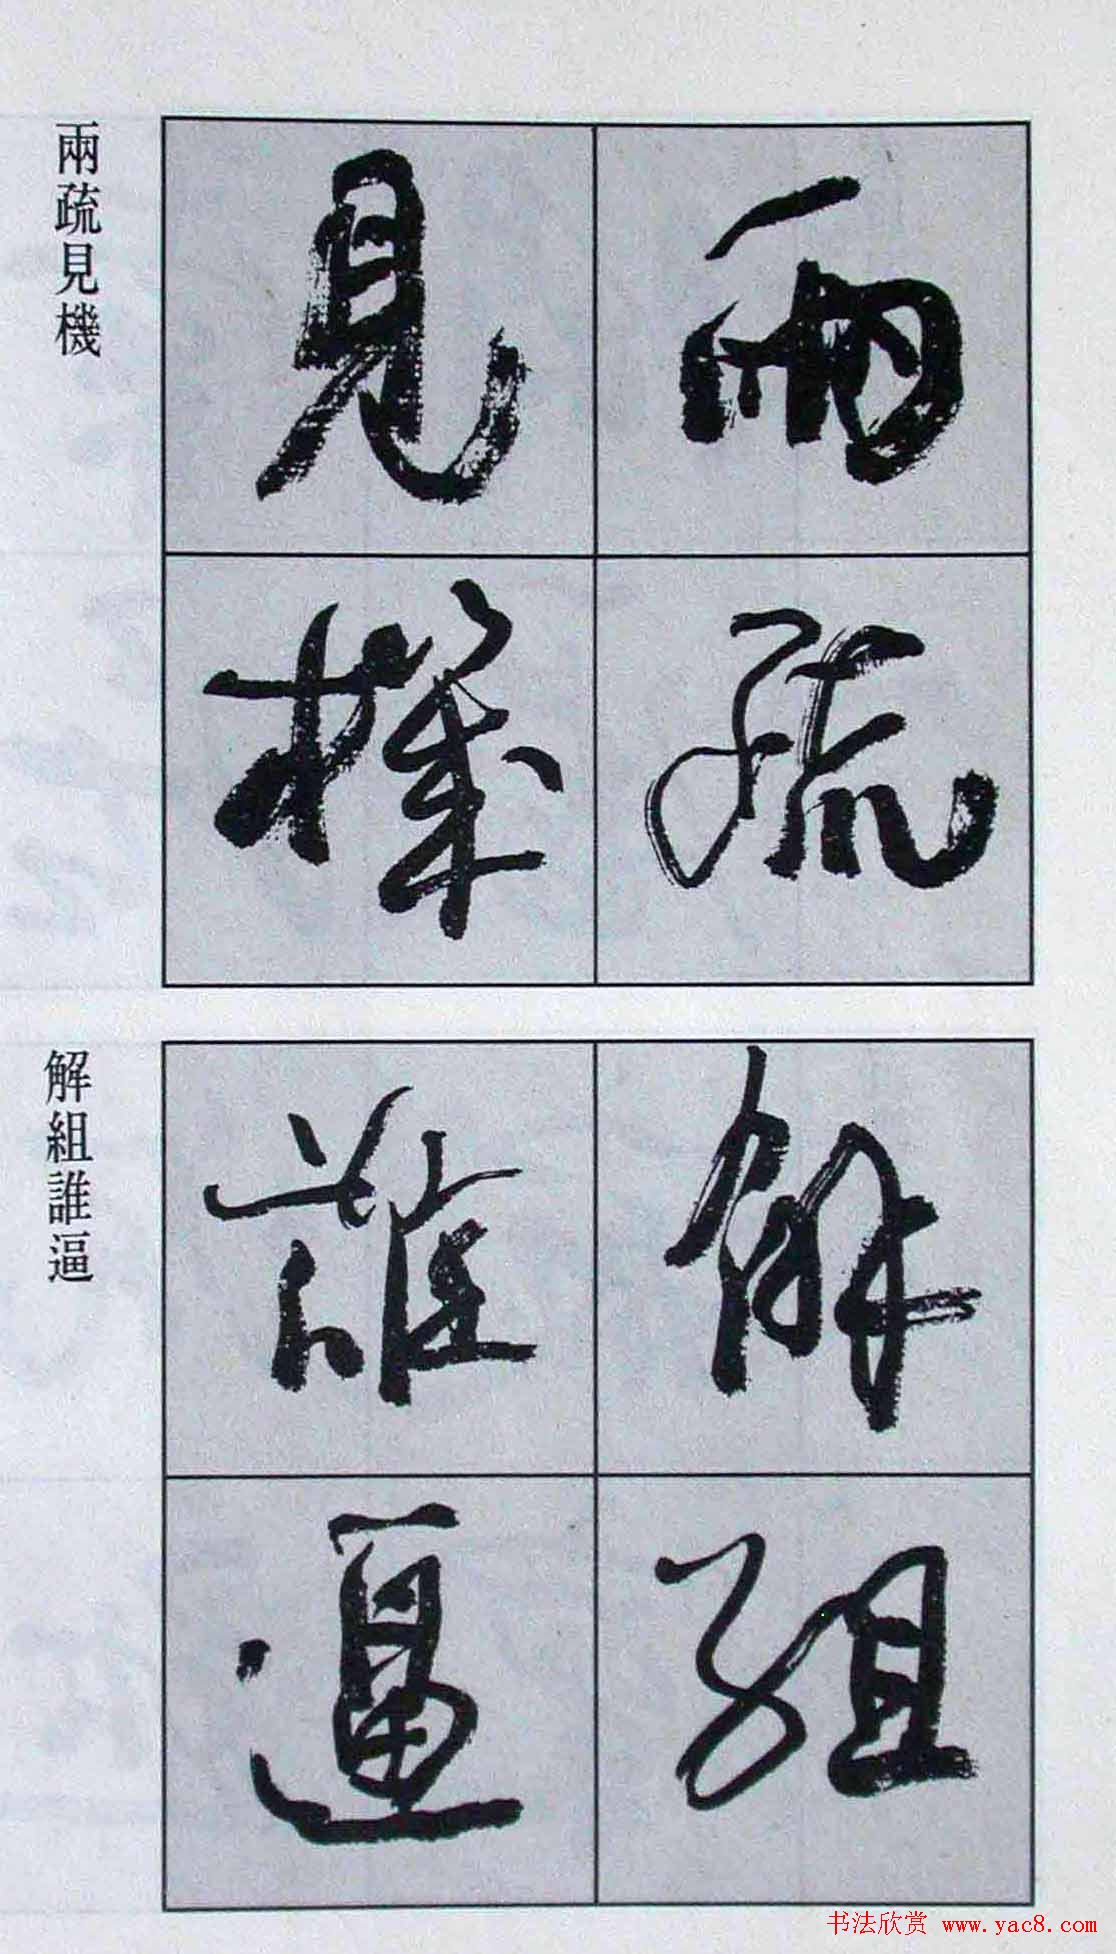 兩疏
見機
兩疏見機
解組
誰逼
解組誰逼
书法欣赏 www.yac8.com